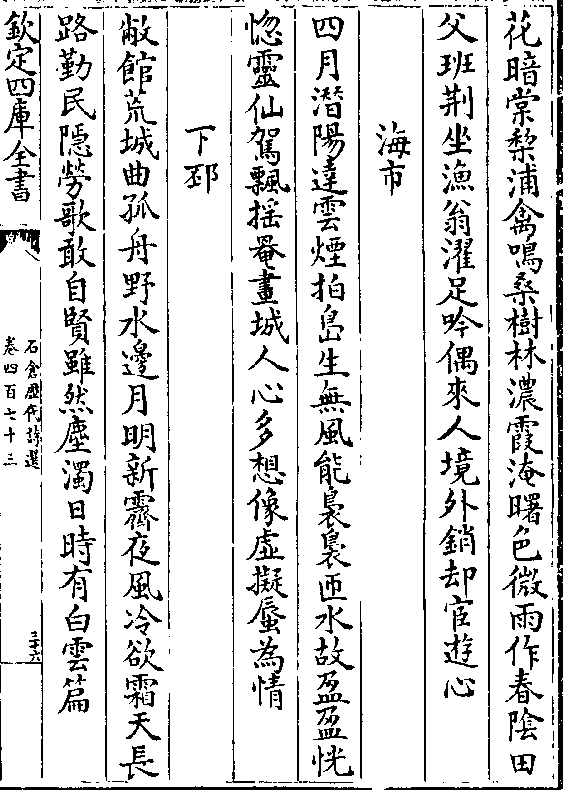 花暗棠梨浦禽鳴桑樹林濃霞淹曙色微雨作春陰田
父班荆坐漁翁濯足吟偶來人境外銷却宦遊心
海市
四月潛陽達雲煙拍島生無風能裊裊匝水故盈盈恍
惚靈仙駕飄揺罨畫城人心多想像虛擬蜃為情
下邳
敝館荒城曲孤舟野水邊月明新霽夜風冷欲霜天長
路勤民隱勞歌敢自賢雖然塵濁日時有白雲篇
欽定四庫全書
石倉歷代詩選
卷四百七十二
三十六